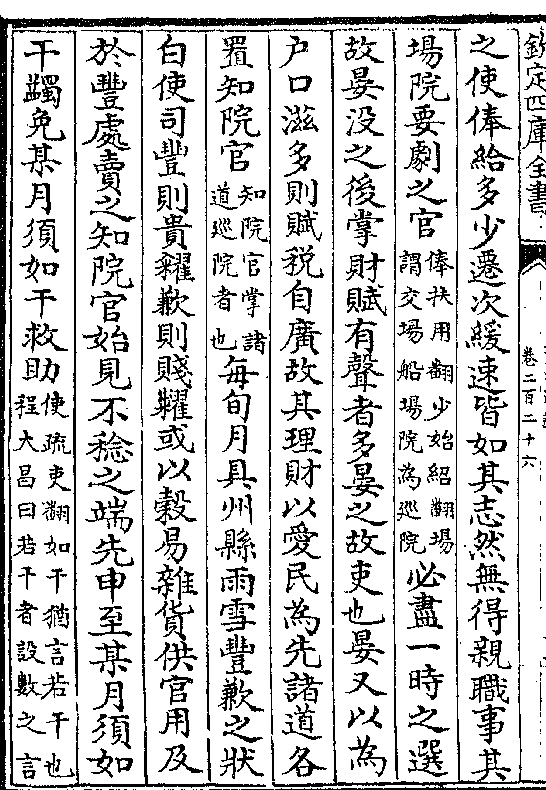 欽定四庫全書
卷二百二十六
之使俸給多少遷次緩速皆如其志然無得親職事其
場院要劇之官俸扶用翻少始紹翻場謂交場船場院為巡院必盡一時之選
故晏没之後掌財賦有聲者多晏之故吏也晏又以為
户口滋多則賦税自廣故其理財以愛民為先諸道各
置知院官知院官掌諸道巡院者也每旬月具州縣雨雪豐歉之狀
白使司豐則貴糴歉則賤糶或以穀易雜貨供官用及
於豐處賣之知院官始見不稔之端先申至某月須如
干蠲免某月須如干救助使疏吏翻如干猶言若干也程大昌曰若干者設數之言